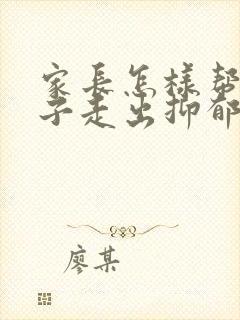 家長怎樣幫
子走出抑郁
廖某